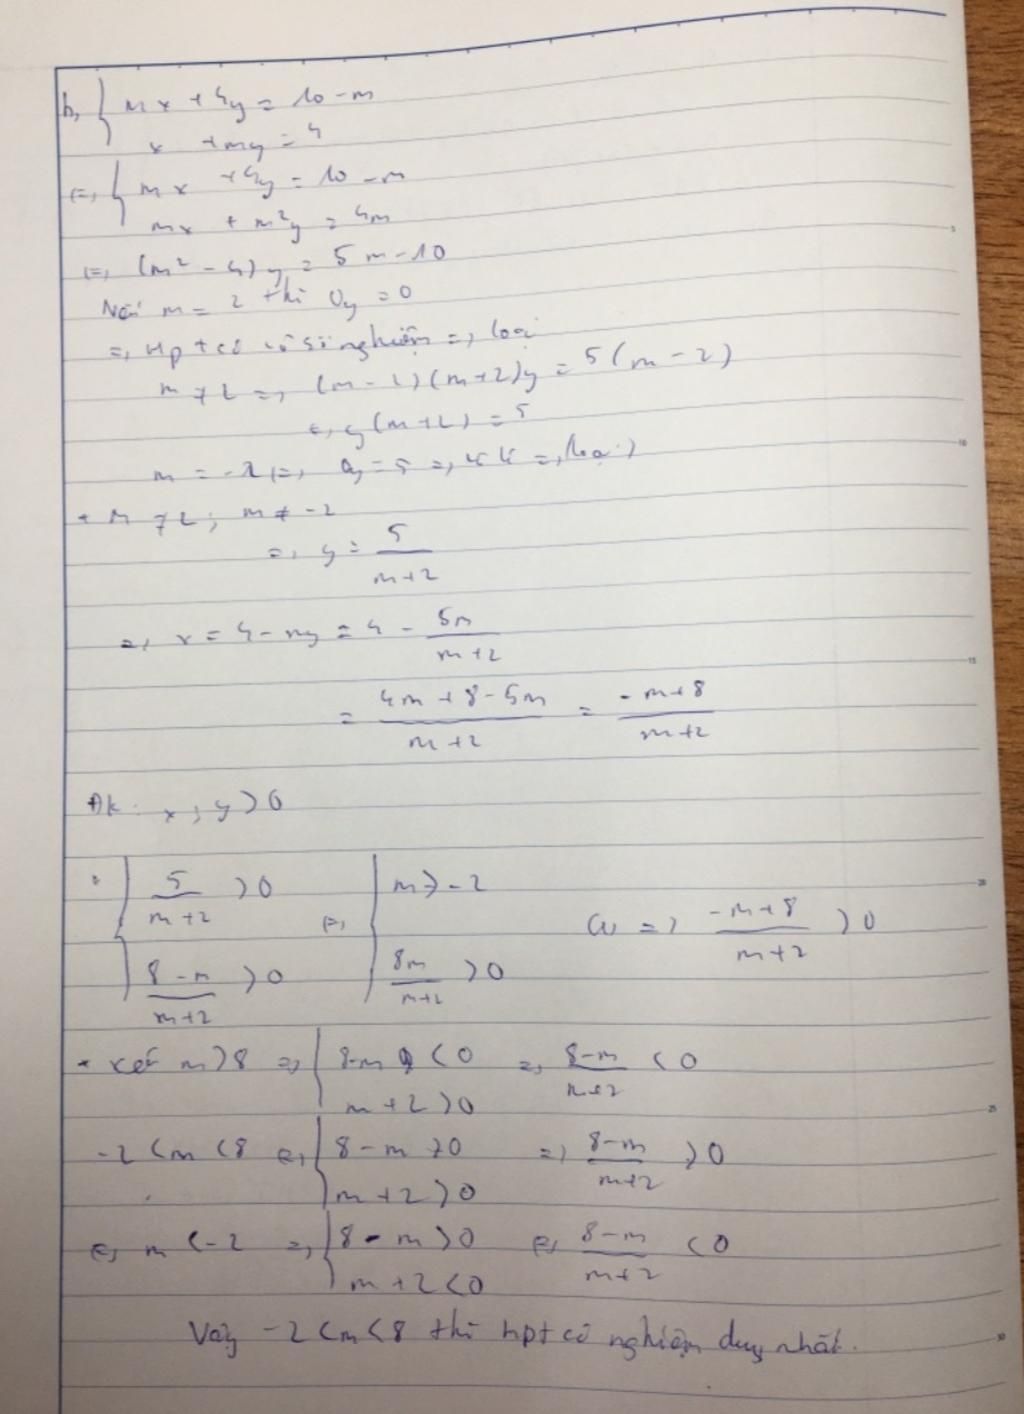 b, { mx + 4y = 10 - m
x + my = 4
<=> { mx + 4y = 10 - m
mx + m²y = 4m
<=> (m² - 4)y = 5m - 10
Nếu m = 2 thì 0y = 0
=> Hpt có vô số nghiệm => loại
m ≠ 2 => (m - 2)(m + 2)y = 5(m - 2)
<=> y(m + 2) = 5
m = -2 => 0y = 5 => => loại)
+ m ≠ 2; m ≠ -2
=> y = 5/(m+2)
=> x = 4 - my = 4 - 5m/(m+2)
= (4m + 8 - 5m)/(m+2) = (-m+8)/(m+2)
Đk: x; y > 0
{ 5/(m+2) > 0 <=> { m > -2 => (-m+8)/(m+2) > 0
{ (8-m)/(m+2) > 0 { 8m/(m+2) > 0
* xét m > 8 => { 8-m < 0 => (8-m)/(m+2) < 0
m + 2 > 0
-2 < m < 8 <=> { 8 - m > 0 => (8-m)/(m+2) > 0
m + 2 > 0
<=> m < -2 => { 8 - m > 0 <=> (8-m)/(m+2) < 0
m + 2 < 0
Vậy -2 < m < 8 thì hpt có nghiệm duy nhất.